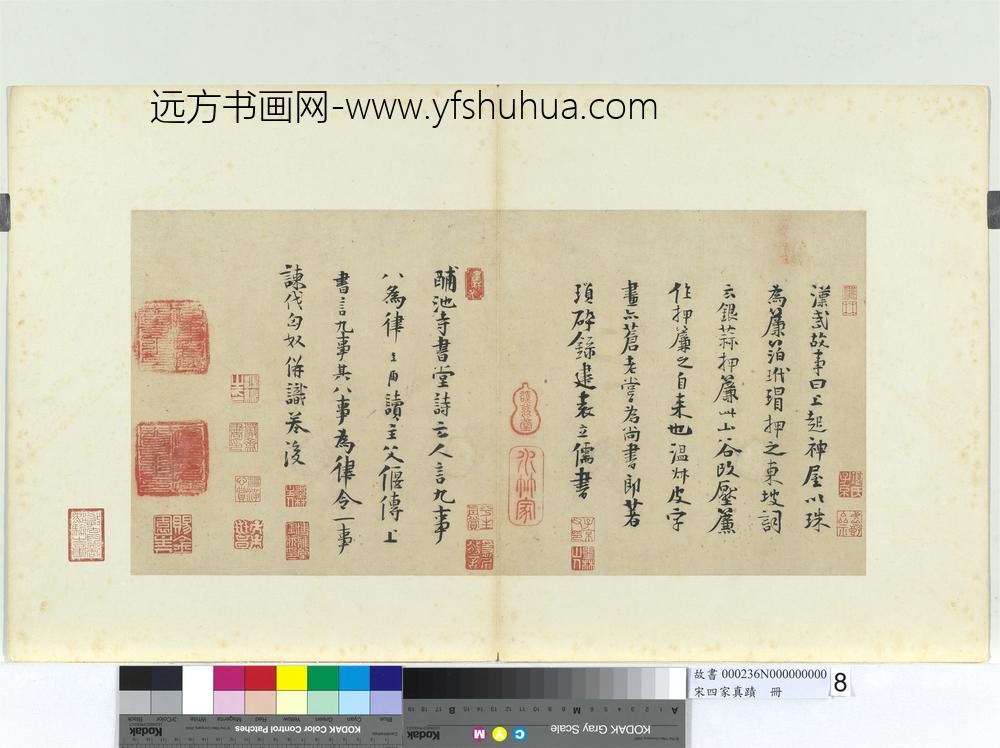 远方书画网-www.yfshuhua.com
漢武故事曰上起神屋以珠
為簾箔玳瑁押之東坡詞
云銀蒜押簾山谷改壓簾
作押簾之自来也温皮字
畫亦蒼老嘗為尚書郎著
瑣碎錄建袁立儒書
酺池寺書堂詩云人言九事
八為律讀主父偃傳上
書言九事其八事為律令一事
諫伐匈奴併識卷後
水竹家
故書 000236N000000000
宋四家真蹟 冊
8
KODAK Color Control Patches
Blue Cyan Green Yellow Red Magenta White 3/Color Black
Kodak
KODAK Gray Scale
C Y M
Kodak
A 1 2 3 4 5 6 M 8 9 10 11 12 13 14 15 B 17 18 19